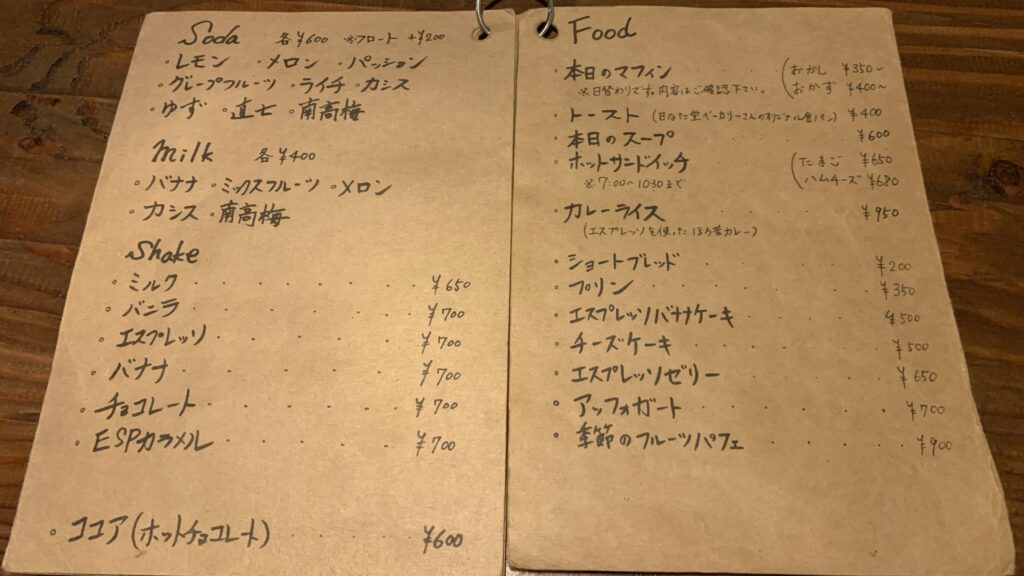 Soda 各¥600 ※フロート +¥200
・レモン ・メロン ・パッション
・グレープフルーツ ・ライチ ・カシス
・ゆず ・直七 ・南高梅
Milk 各¥400
・バナナ ・ミックスフルーツ ・メロン
・カシス ・南高梅
Shake
・ミルク ¥650
・バニラ ¥700
・エスプレッソ ¥700
・バナナ ¥700
・チョコレート ¥700
・ESPカラメル ¥700
・ココア(ホットチョコレート) ¥600
Food
・本日のマフィン (おかし ¥350〜
※日替わりです。内容はご確認下さい。 おかず ¥400〜
・トースト (日なた堂ベーカリーさんのオリジナル食パン) ¥400
・本日のスープ ¥600
・ホットサンドイッチ (たまご ¥650
※7:00〜10:30まで ハムチーズ ¥680
・カレーライス ¥950
(エスプレッソを使ったほろ苦カレー)
・ショートブレッド ¥200
・プリン ¥350
・エスプレッソバナナケーキ ¥500
・チーズケーキ ¥500
・エスプレッソゼリー ¥650
・アッフォガート ¥700
・季節のフルーツパフェ ¥900